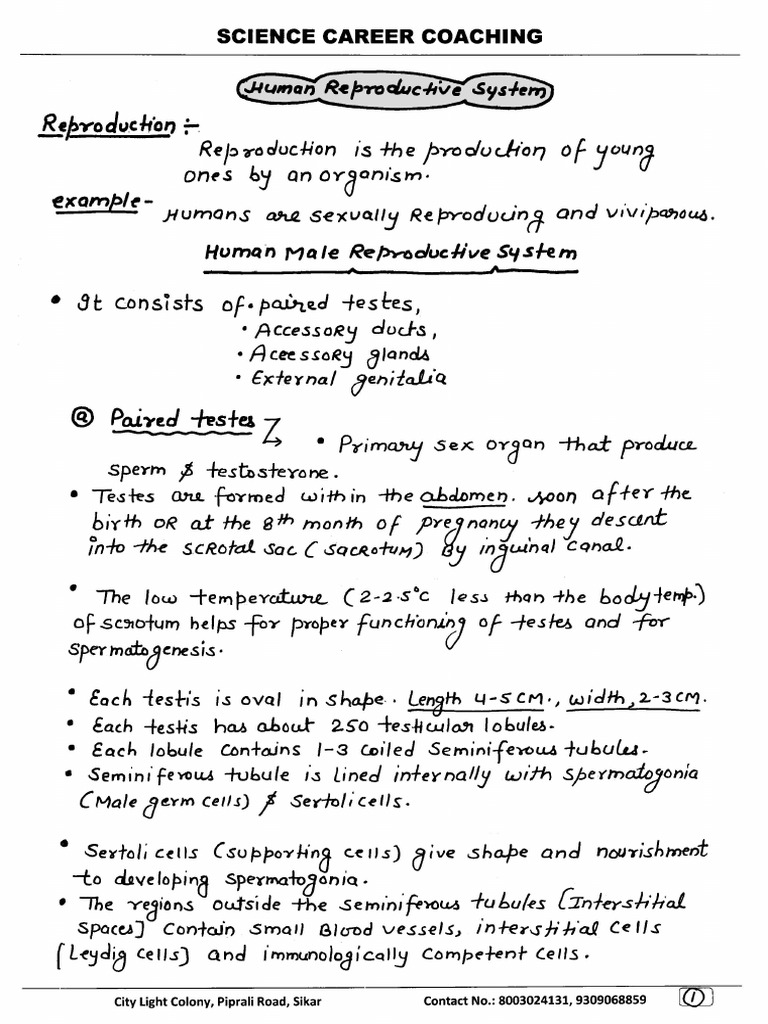 SCIENCE CAREER COACHING
Human Reproductive System
Reproduction :-
Reproduction is the production of young
ones by an organism.
example - Humans are sexually Reproducing and viviparous.
Human Male Reproductive System
• It consists of • paired testes,
• Accessory ducts,
• Aceessory glands
• External genitalia
ⓐ Paired testes
• Primary sex organ that produce
sperm & testosterone.
• Testes are formed within the abdomen. soon after the
birth OR at the 8th month of pregnancy they descent
into the scrotal sac (sacrotum) By inguinal canal.
• The low temperature (2-2.5°C less than the body temp.)
of scrotum helps for proper functioning of testes and for
spermatogenesis.
• Each testis is oval in shape. Length 4-5 CM., width, 2-3 CM.
• Each testis has about 250 testicular lobules.
• Each lobule contains 1-3 coiled seminiferous tubules.
• Seminiferous tubule is lined internally with spermatogonia
(Male germ cells) & Sertoli cells.
• Sertoli cells (supporting cells) give shape and nourishment
to developing spermatogonia.
• The regions outside the seminiferous tubules [Interstitial
spaces] contain small Blood vessels, interstitial cells
[Leydig cells] and immunologically competent cells.
City Light Colony, Piprali Road, Sikar Contact No.: 8003024131, 9309068859 1